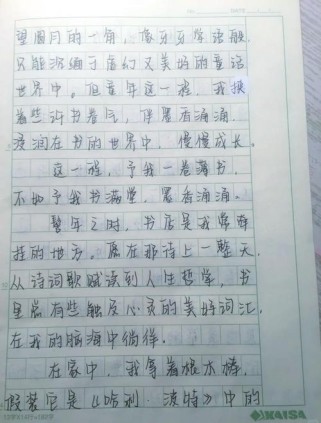 望圆月的一角,像牙牙学语般
只能沉缅于虚幻又美好的童话
世界中。但童年这一程,我揆
着些许书卷气,伴墨香涌涌,
浸润在书的世界中,慢慢成长。
这一程,予我一卷薄书,
不如予我书满堂,墨香涌涌。
髫年之时,书店是我常驻
扎的地方。愿在那待上一整天,
从诗词歌赋读到人生哲学,书
里总有些触及心灵的美好词汇,
在我的脑海中徜徉。
在家中,我拿着根木棒,
假装它是《哈利·波特》中的
KAISA